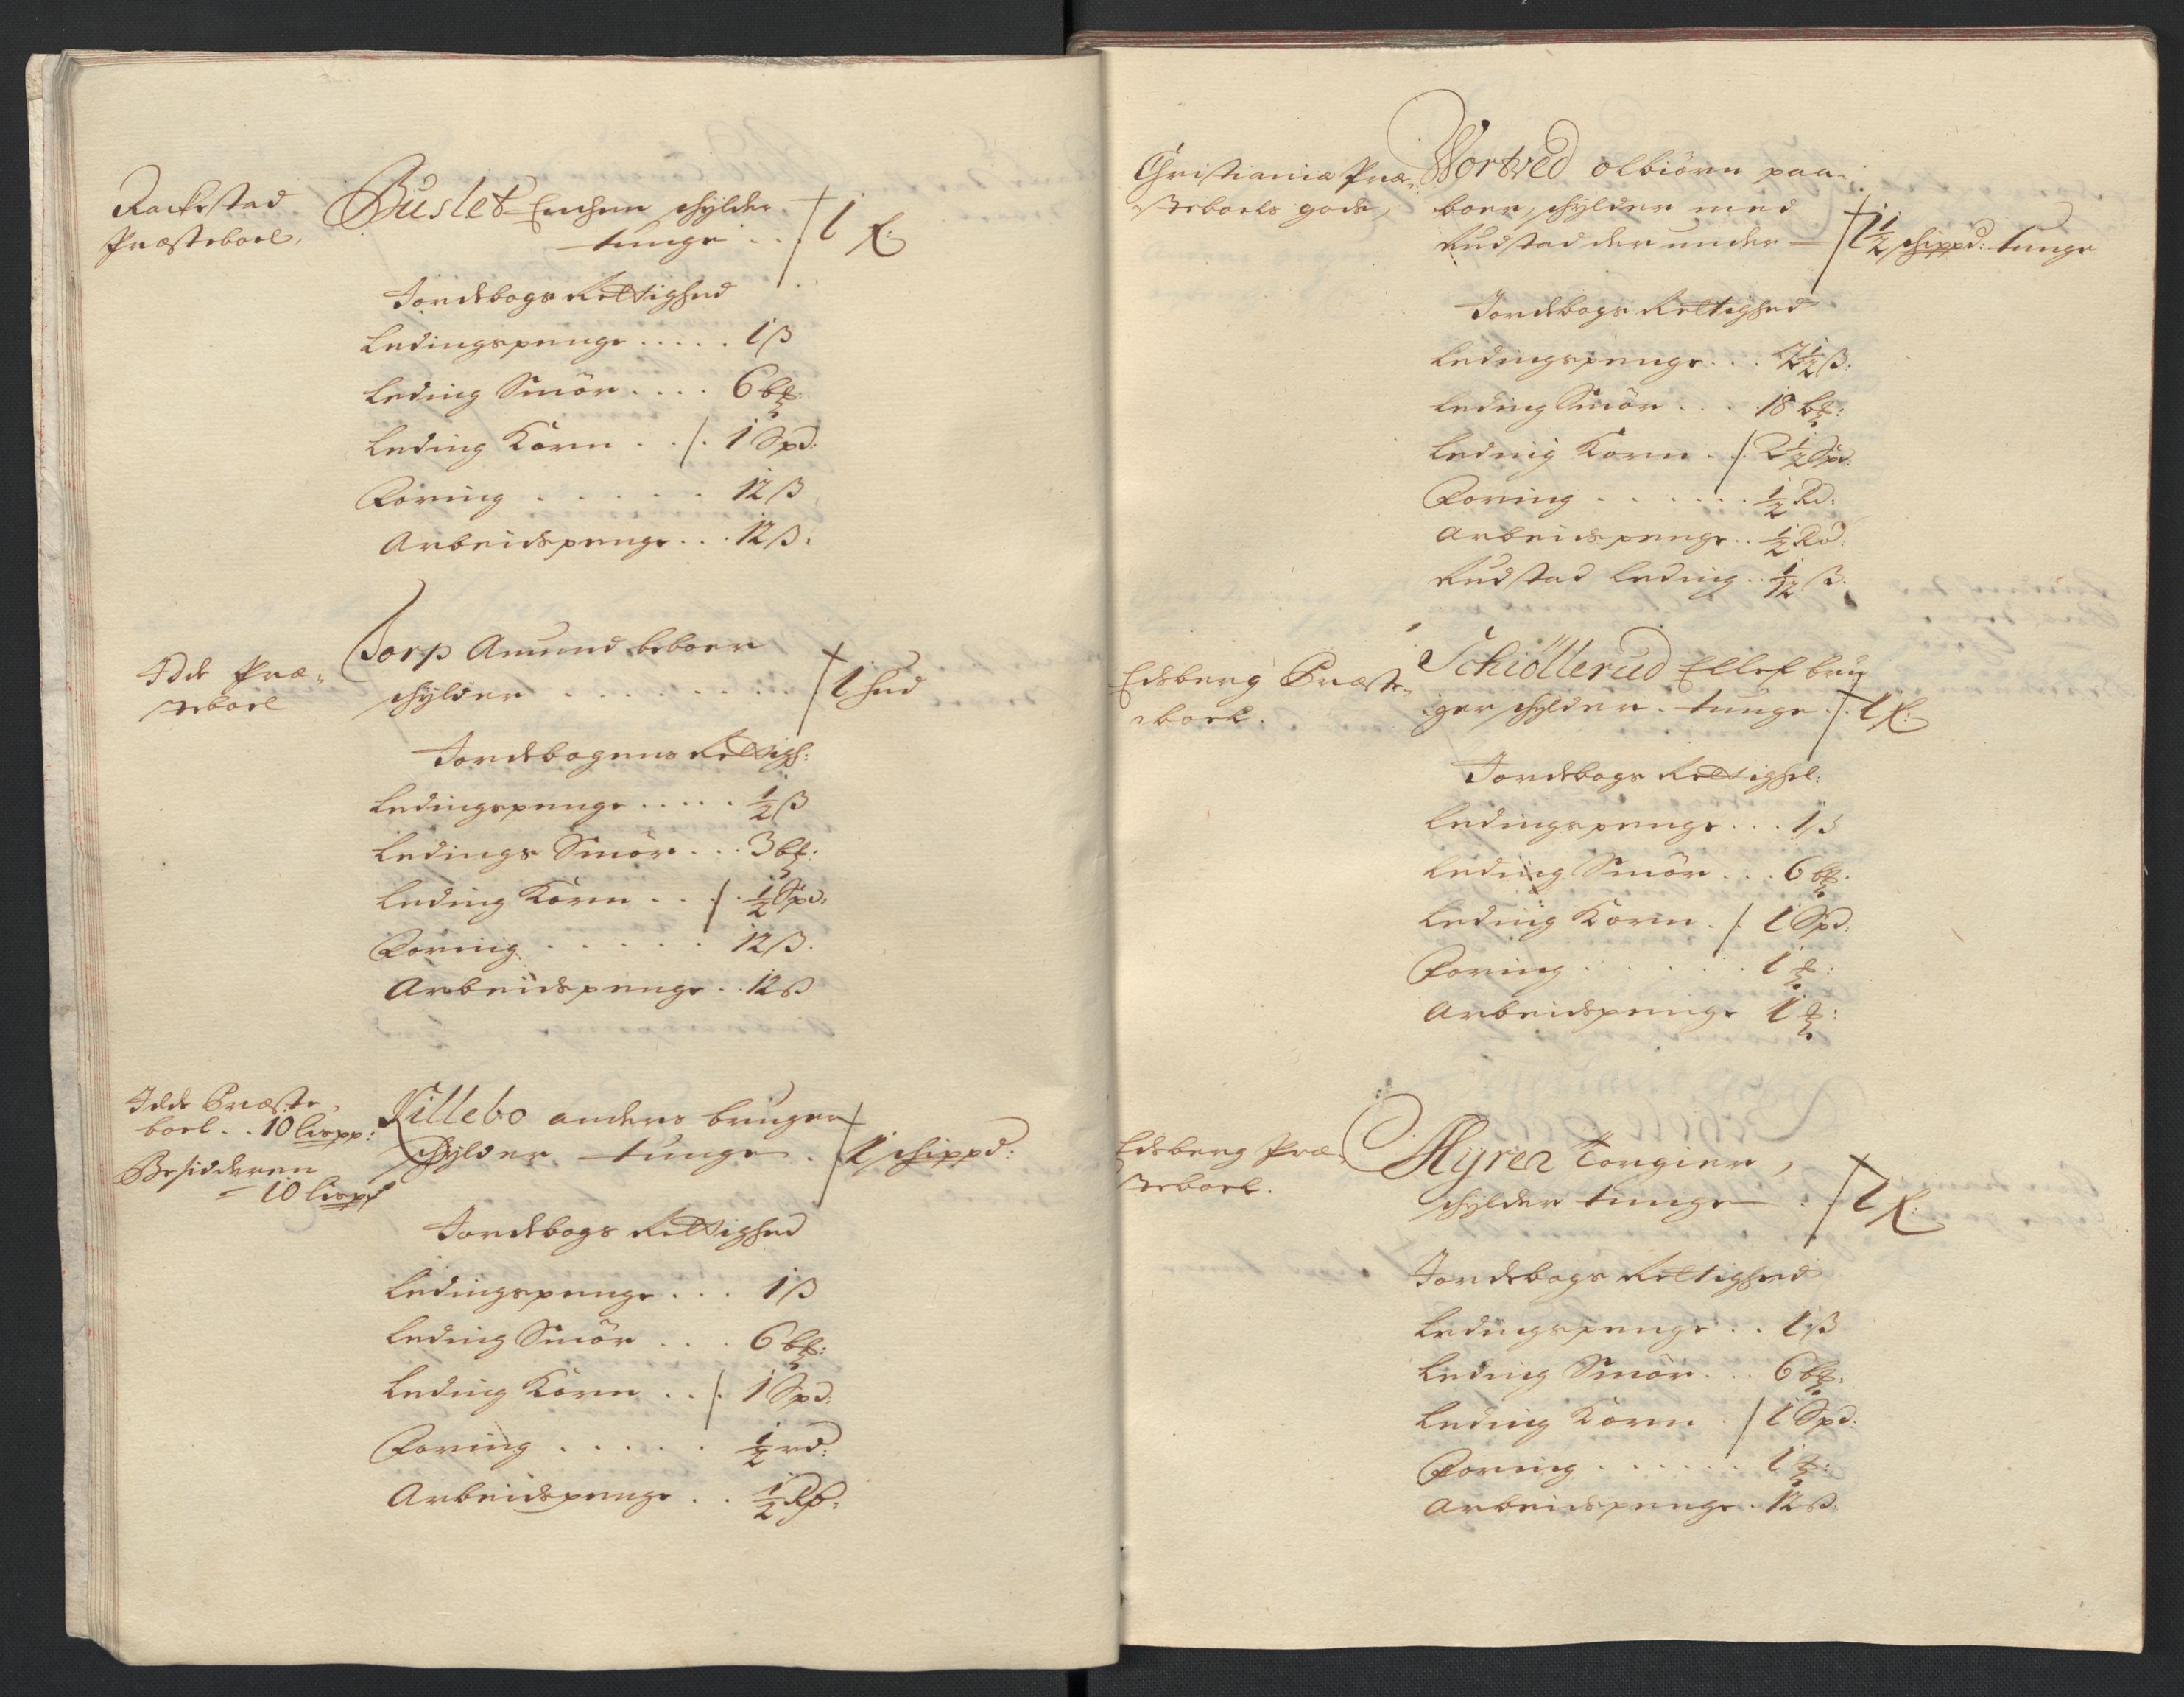 Rackestad
Præsteboel,
Buslet Enchen schylder
tunge . . 1 
Jordebogs Rettighed
Ledingspenge . . . . . 1 ß
Leding Smör . . . . 6 b
Leding Korn . . /. 1 Spd:
Foring . . . . . . 12 ß
Arbeidspenge . . . 12 ß.
Idde Præ-
steboel
Torp Amund beboer
schylder . . . . . . . . 1 hud
Jordebogens Rettigh:
Ledingspenge . . . . . ½ ß
Ledings Smör . . . 3 b
Leding Korn . . /. ½ Spd:
Foring . . . . . . 12 ß.
Arbeidspenge . . 12 ß
Idde Præste-
boel . . 10 lispp:
Besidderen
- 10 lispd
Killebo anders bruger
schylder tunge . 1 schippd:
Jordebogs Rettighed
Ledingspenge . . . 1 ß
Leding Smör . . . 6 b
Leding Korn . . /. 1 Spd:
Foring . . . . . ½ rd:
Arbeidspenge . . ½ Rd:
Christiania Præ-
steboels gods,
Wortved olbiörn paa-
boer, schylder med
Rudstad der under - 1½ schippd: tunge
Jordebogs Rettighed
Ledingspenge . . . 2½ ß:
Leding Smör . . . 18 b
Leding Korn . /. 2½ Spd:
Foring . . . . . . ½ Rd:
Arbeidspenge . . ½ Rd:
Rudstad Leding . . 1/12 ß.
Edsberg Præste-
boel.
Schiöllerud Ellef bru-
ger schylder tunge . 1 
Jordebogs Rettighed:
Ledingspenge . . . 1 ß
Leding Smör . . . 6 b
Leding Korn . /. 1 Spd:
Foring . . . . . . 1
Arbeidspenge 1
Edsberg Præ-
steboel.
Myrer Torgier,
schylder tunge . 1 
Jordebogs Rettighed
Ledingspenge . . 1 ß
Leding Smör . . . 6 b
Leding Korn . / 1 Spd:
Foring . . . . . . 1
Arbeidspenge . 12 ß.